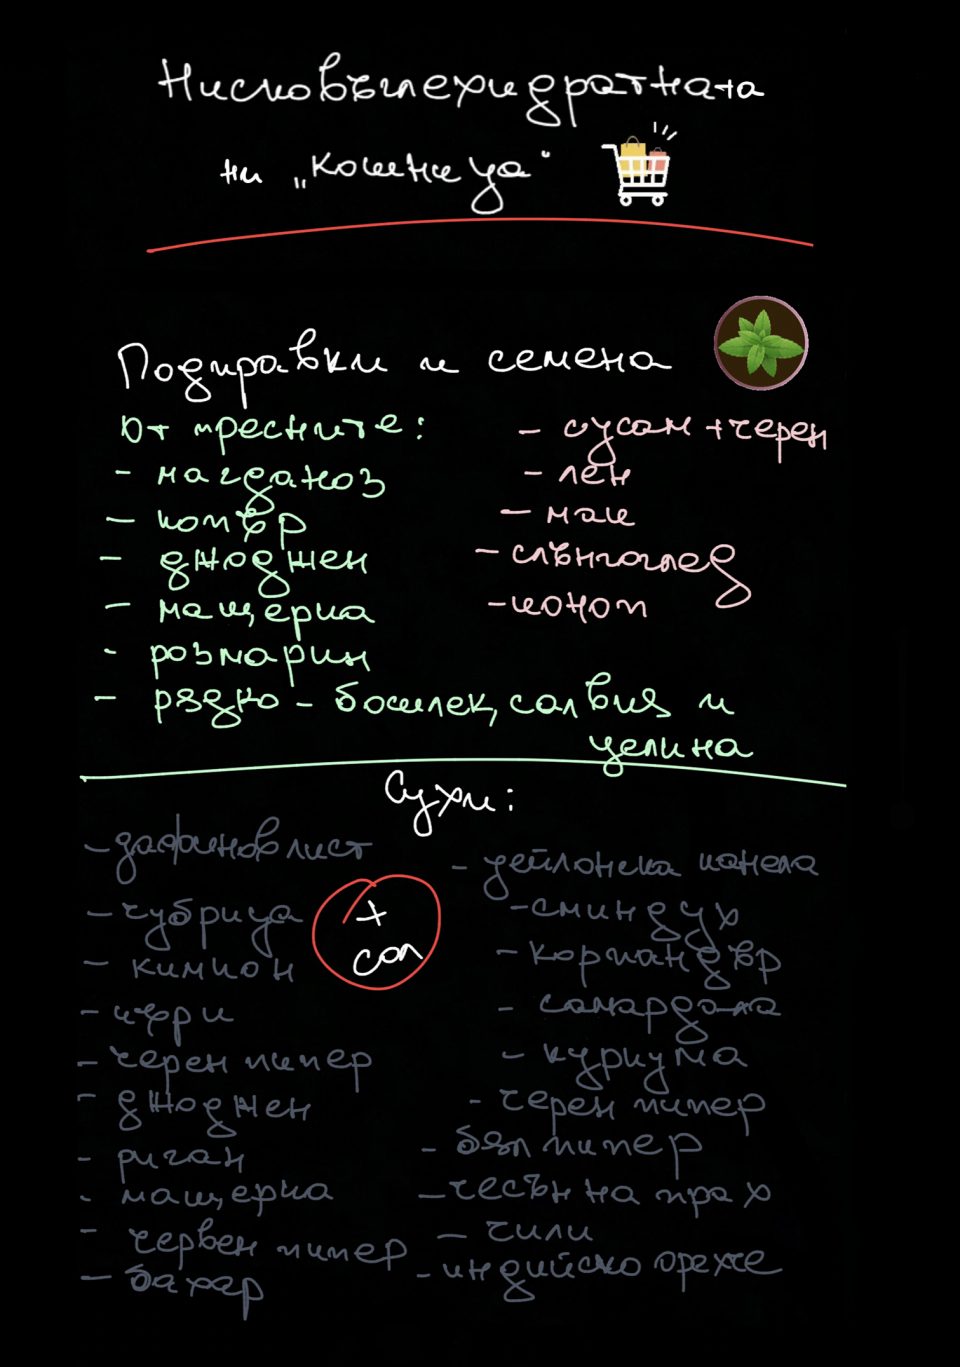 Нисковъглехидратната
ни „кошница"
Подправки и семена
От пресните:
- магданоз
- копър
- джоджен
- мащерка
- розмарин
- рядко - босилек, салвия и
целина
- сусам + черен
- лен
- мак
- слънчоглед
- коноп
Сухи:
- дафинов лист
- чубрица
- кимион
- къри
- черен пипер
- джоджен
- риган
- мащерка
- червен пипер
- бахар
+
сол
- цейлонска канела
- сминдух
- кориандър
- самардала
- куркума
- черен пипер
- бял пипер
- чесън на прах
- чили
- индийско орехче